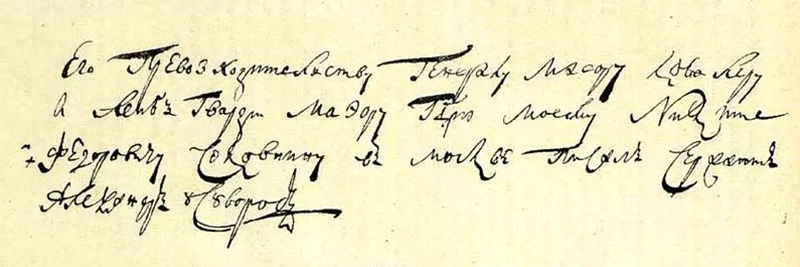 Его Превозходителству Генералу Маеору Ковалеру
и Леибъ Гвардии Маэору Гдрю моему Никите
Федоровичу Соковнину въ москве писалъ Сержантъ
Александръ Суворовъ